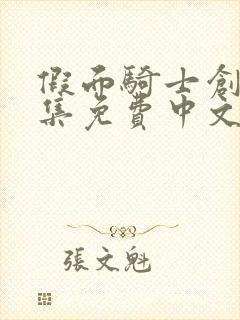 假面騎士創
集免費中文
張文魁